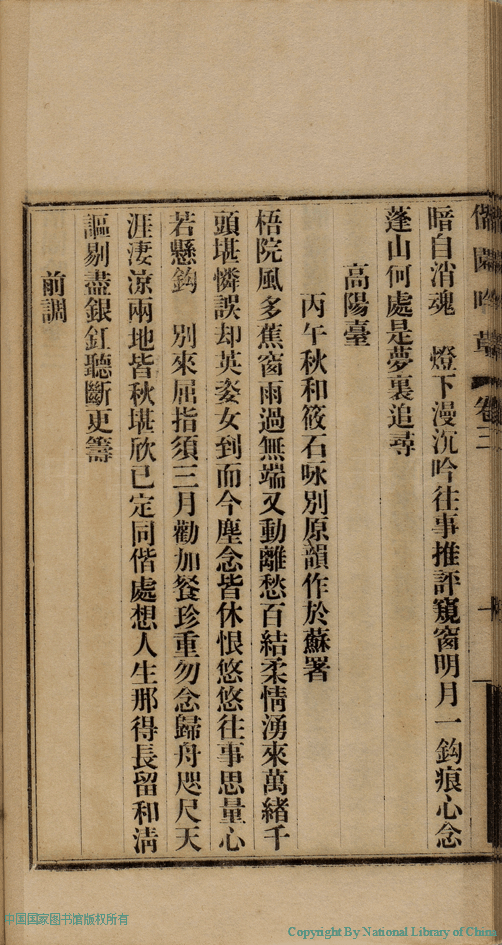 偕園吟草 卷三 十
暗自消魂 燈下漫沉吟往事推評窺窗明月一鈎痕心念
蓬山何處是夢裏追尋
高陽臺
丙午秋和筱石咏別原韻作於蘇署
梧院風多蕉窗雨過無端又動離愁百結柔情湧來萬緒千
頭堪憐誤却英姿女到而今塵念皆休恨悠悠往事思量心
若懸鈎 別來屈指須三月勸加餐珍重勿念歸舟咫尺天
涯淒涼兩地皆秋堪欣已定同偕處想人生那得長留和淸
謳剔盡銀釭聽斷更籌
前調
中国国家图书馆版权所有
Copyright By National Library of China